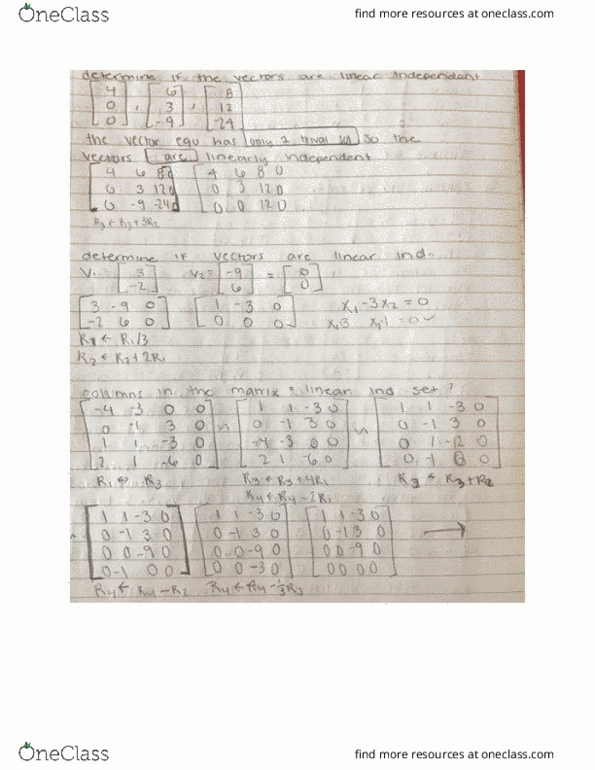 OneClass find more resources at oneclass.com
determine if the vectors are linear independant
[4 0 0], [6 3 -9], [8 12 -24]
the vector equ has only 1 trival sol so the
vectors are linearly independent
[4 6 8 0 [4 6 8 0
0 3 12 0 0 3 12 0
0 -9 -24 0] 0 0 12 0]
R3 ← R3 + 3R2
determine if vectors are linear ind.
V1 [3 -2] V2 = [-9 6] = [0 0]
[3 -9 0 [1 -3 0 x1 -3x2 = 0
-2 6 0] 0 0 0] x1 3 x2 1 = 0
R1 ← R1/3
R2 ← R2 + 2R1
columns in the matrix = linear ind set?
[-4 -3 0 0 [1 1 -3 0 [1 1 -3 0
0 -1 3 0 0 -1 3 0 0 -1 3 0
1 1 -3 0 -4 -3 0 0 0 1 -12 0
2 1 -6 0] 2 1 -6 0] 0 -1 0 0]
R1 ↔ R3 R3 ← R3 + 4R1 R3 ← R3 + R2
R4 ← R4 - 2R1
[1 1 -3 0 [1 1 -3 0 [1 1 -3 0
0 -1 3 0 0 -1 3 0 0 -1 3 0
0 0 -9 0 0 0 -9 0 0 0 -9 0
0 -1 0 0] 0 0 -3 0] 0 0 0 0] →
R4 ← R4 - R2 R4 ← R4 - 1/3 R3
OneClass find more resources at oneclass.com